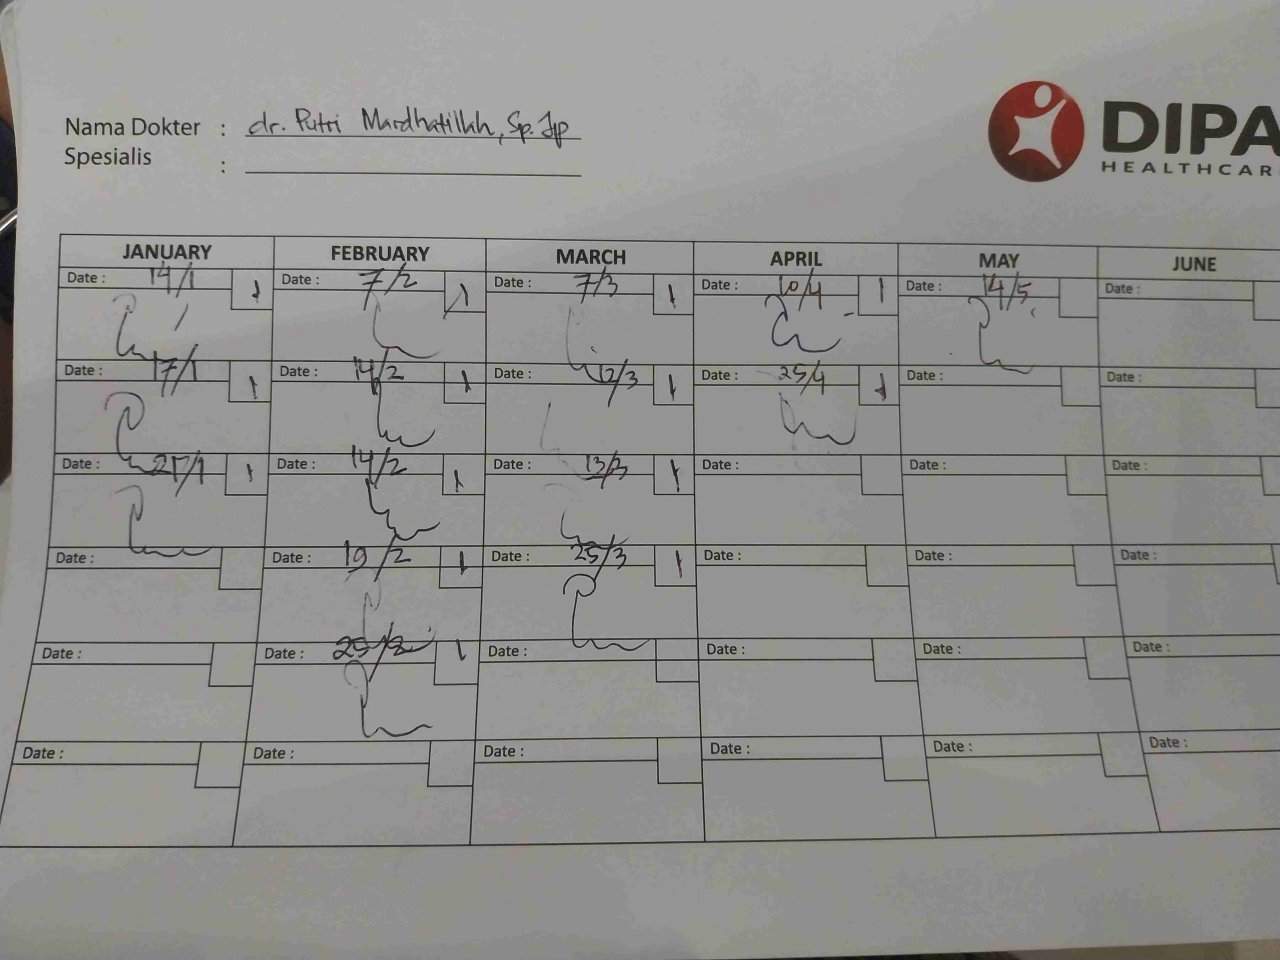 Nama Dokter : dr. Putri Mardhatillah, Sp.Jp
Spesialis :
DIPA
HEALTHCAR
JANUARY FEBRUARY MARCH APRIL MAY JUNE
Date : 14/1 1 Date : 7/2 1 Date : 7/3 1 Date : 10/4 1 Date : 14/5 Date :
Date : 17/1 1 Date : 14/2 1 Date : 12/3 1 Date : 25/4 1 Date : Date :
Date : 1 Date : 14/2 1 Date : 13/3 1 Date : Date : Date :
Date : Date : 19/2 1 Date : 25/3 1 Date : Date : Date :
Date : Date : 25/2 1 Date : Date : Date : Date :
Date : Date : Date : Date : Date : Date :